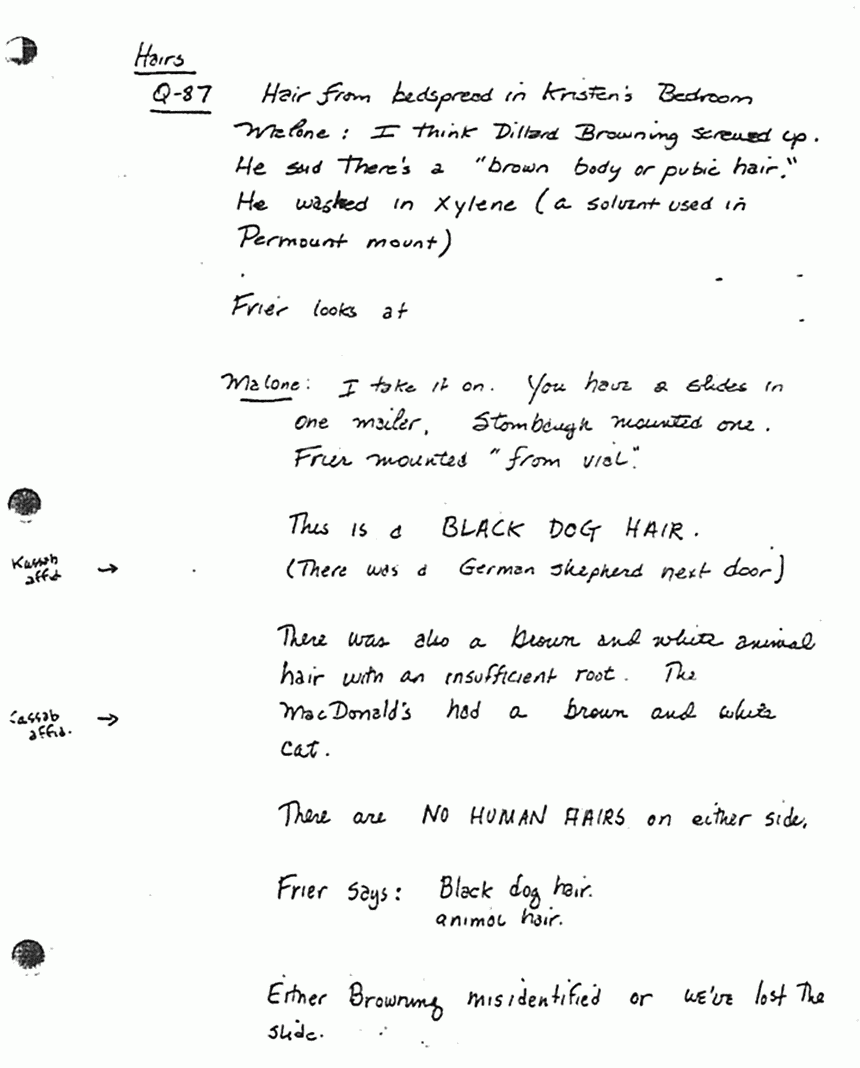 Hairs
Q-87 Hair from bedspread in Kristen's Bedroom
Malone: I think Dillard Browning screwed up.
He said There's a "brown body or pubic hair."
He washed in Xylene (a solvent used in
Permount mount)
Frier looks at
Malone: I take it on. You have 2 slides in
one mailer. Stombaugh mounted one.
Frier mounted "from vial".
This is a BLACK DOG HAIR.
Kassab
affid → (There was a German shepherd next door)
There was also a brown and white animal
hair with an insufficient root. The
Kassab
affid. → MacDonald's had a brown and white
cat.
There are NO HUMAN HAIRS on either side.
Frier says: Black dog hair.
animal hair.
Either Browning misidentified or we've lost the
slide.